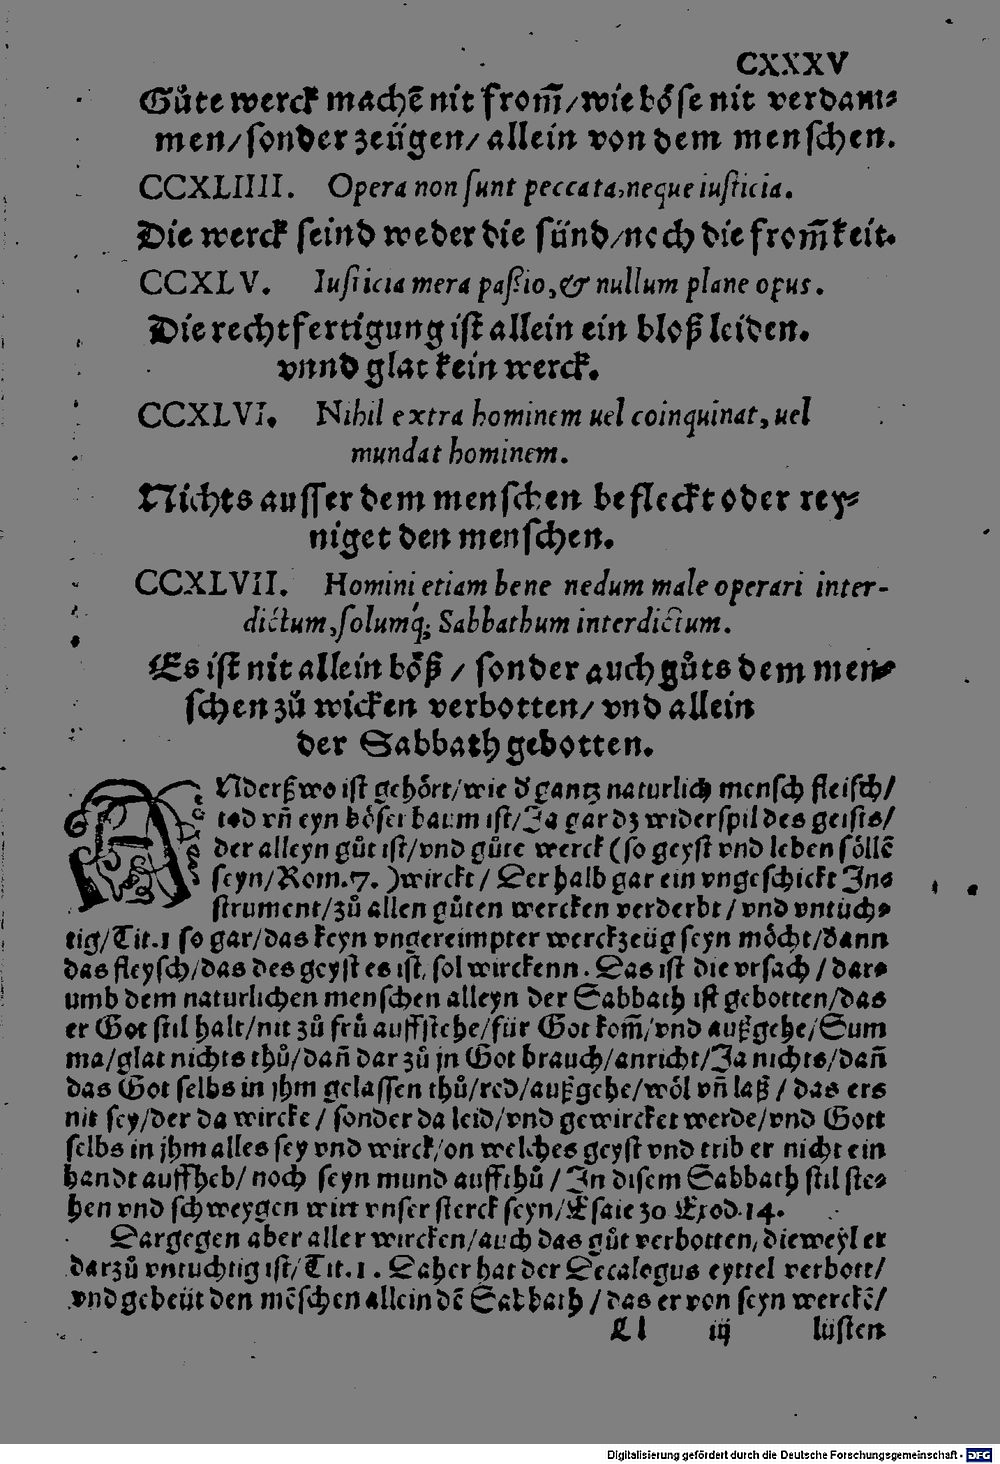 CXXXV
Gůte werck machē nit from̄/wie böse nit verdam⸗
men/sonder zeügen/allein von dem menschen.
CCXLIIII. Opera non sunt peccata,neque iusticia.
Die werck seind weder die sünd/noch die from̄keit.
CCXLV. Iusticia mera passio,& nullum plane opus.
Die rechtfertigung ist allein ein bloß leiden.
vnnd glat kein werck.
CCXLVI. Nihil extra hominem uel coinquinat,uel
mundat hominem.
Nichts ausser dem menschen befleckt oder rey⸗
niget den menschen.
CCXLVII. Homini etiam bene nedum male operari inter-
dictum,solumq́; Sabbathum interdictum.
Es ist nit allein böß / sonder auch gůts dem men⸗
schen zů wicken verbotten/ vnd allein
der Sabbath gebotten.
ANderßwo ist gehört/wie d' gantz naturlich mensch fleisch/
tod vn̄ eyn böser baum ist/Ja gar dz widerspil des geists/
der alleyn gůt ist/vnd gůte werck (so geyst vnd leben söllē
seyn/Rom.7.)wirckt/ Derhalb gar ein vngeschickt Ins
strument/zů allen gůten wercken verderbt/vnd vntüch⸗
tig/Tit.1 so gar/das keyn vngereimpter werckzeüg seyn möcht/dann
das fleysch/das des geyst es ist, sol wirckenn. Das ist die vrsach/dar⸗
umb dem naturlichen menschen alleyn der Sabbath ist gebotten/das
er Got stil halt/nit zů frů auffstehe/für Got kom̄/vnd außgehe/Sum
ma/glat nichts thů/dan̄ dar zů jn Got brauch/anricht/Ja nichts/dan̄
das Got selbs in jhm gelassen thů/red/außgehe/wöl vn̄ laß / das ers
nit sey/der da wircke/ sonder da leid/vnd gewircket werde/vnd Gott
selbs in jhm alles sey vnd wirck/on welches geyst vnd trib er nicht ein
handt auffheb/ noch seyn mund auffthů/In disem Sabbath stil ste⸗
hen vnd schweygen wirt vnser sterck seyn/Esaie 30 Exod.14.
Dargegen aber aller wircken/auch das gůt verbotten, dieweyl er
darzů vntuchtig ist/Tit.1. Daher hat der Decalogus eyttel verbott/
vnd gebeüt den mēschen allein dē Sabbath/das er von seyn werckē/
Ll iij lüsten
Digitalisierung gefördert durch die Deutsche Forschungsgemeinschaft - DFG